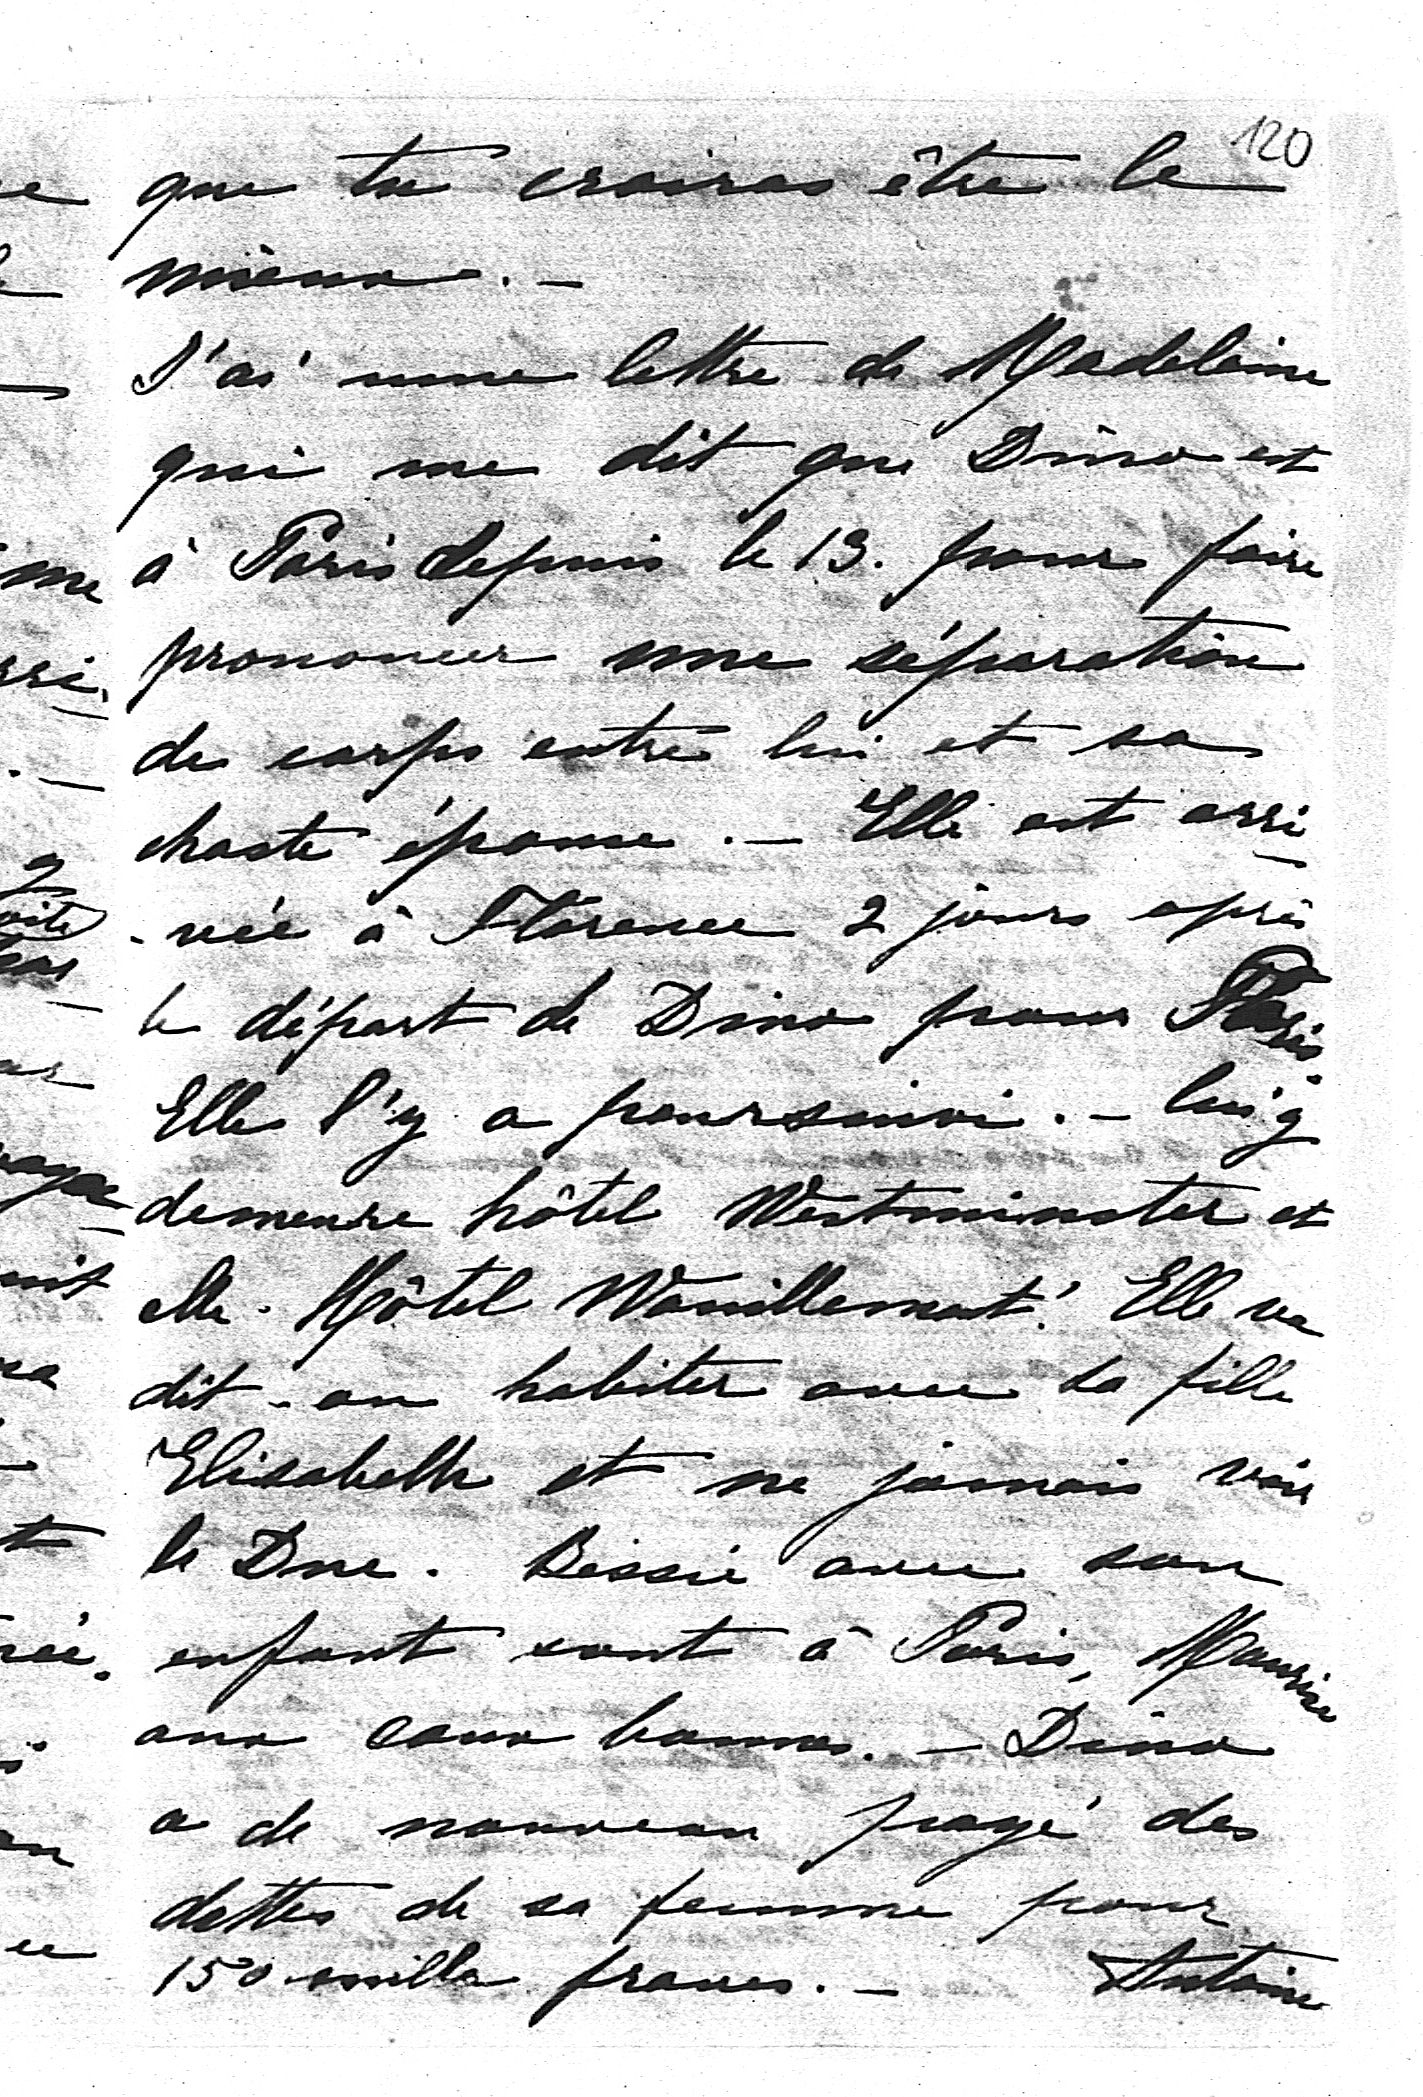 120
que tu croiras être le
mieux. –
J'ai une lettre de Madeleine
qui me dit que Dino est
à Paris depuis le 13. pour faire
prononcer une séparation
de corps entre lui et sa
chaste épouse. – Elle est arri
-vée à Florence 2 jours après
le départ de Dino pour Paris
Elle l'y a poursuivi. – lui
demeure hôtel Westminster et
elle. Hôtel Wouillemont! Elle va
dit-on habiter avec sa fille
Elisabeth et ne jamais voir
le Duc. Bessie avec son
enfant sont à Paris, Maurice
aux eaux bonnes. – Dino
a de nouveau payé des
dettes de sa femme pour
150 mille francs. – Antoine